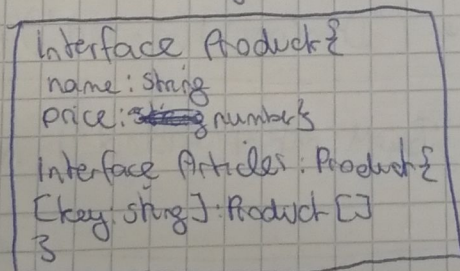 Interface Product {
name: string
price: number}
Interface Articles: Product {
[key: string]: Product []
}